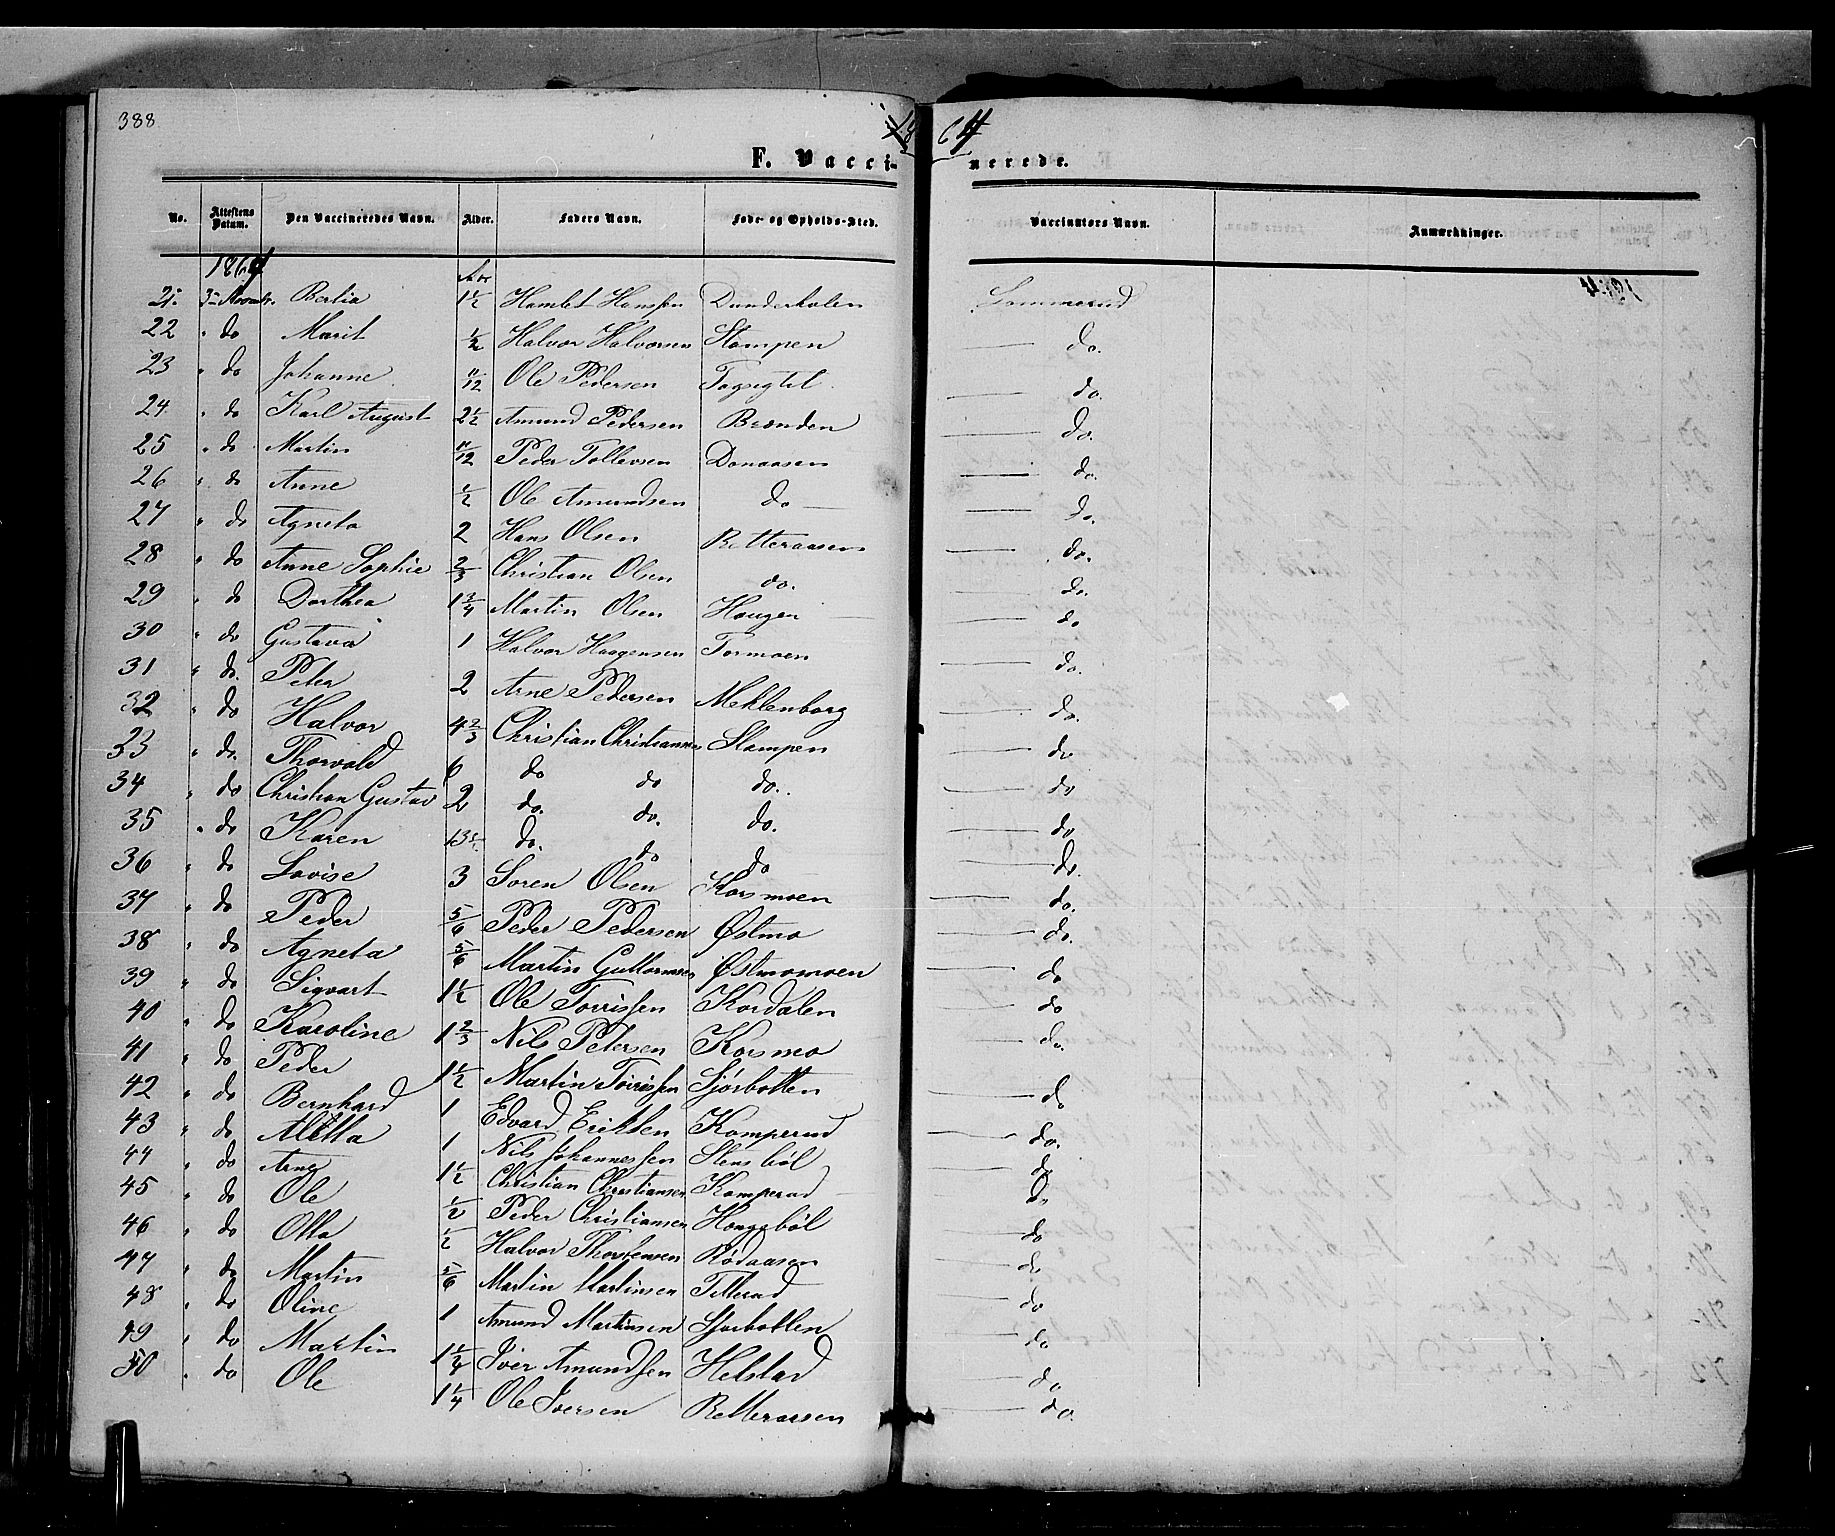 388
1864
F. Vaccinerede.
No. Attestens Datum. Den Vaccineredes Navn. Alder. Faders Navn. Føde- og Opholds-Sted. Vaccinators Navn. Anmærkninger.
1864 Aar
21. 3 Novembr. Bertia 1½ Hamlet Hanssen Dunderholen Sommerud
22 " do Marit ½ Halvor Halvorsen Stampen — do.
23 " do Johanne 11/12 Ole Pedersen — do.
24 " do Karl August 2½ Amund Pedersen Brænden — do.
25 " do Martin 11/12 Peder Tollevsen Donaasen — do.
26 " do Anne ½ Ole Amundsen do — do.
27 " do Agneta 2 Hans Olsen Retteraasen — do.
28 " do Anne Sophie ⅔ Christian Olsen do. — do.
29 " do Dorthea 1¾ Martin Olsen Haugen — do
30 " do Gustava 1 Halvor Haagensen Tormoen — do.
31 " do. Peter 2 Arne Pedersen Meklenborg — do.
32 " do Halvor 4⅔ Christian Christiansen Stampen — do
33 " do. Thorvald 6 do do do. — do
34 " do Christian Gustav 2 do. do. do. — do
35 " do Karen 13 do. do do — do.
36 " do Lovise 3 Soren Olsen Korsmoen — do.
37 " do Peder 5/6 Peder Pedersen Østmo — do.
38 " do Agneta 5/6 Martin Guttormsen Østmomoen — do
39 " do Sigvart 1½ Ole Torrissen Kordalen — do
40 " do Karoline 1⅔ Nils Petersen Korsmo — do.
41 " do Peder 1½ Martin Torrissen Sjørbotten — do
42 " do Bernhard 1 Edvard Eriksen Komperud — do.
43 " do Aletta 1 Nils Johannessen Stensbøl — do
44 " do Arne 1½ Christian Christiansen Komperud — do
45 " do Ole ½ Peder Christiansen Haugsbøl — do
46 " do Otto ½ Halvor Thorstensen Rødaasen — do
47 " do Martin 5/6 Martin Martinsen Tillerud — do
48 " do Oline 1 Amund Martinsen Sjorbotten — do
49 " do Martin 1¼ Iver Amundsen Helstad — do
50 " do Ole 1¼ Ole Iversen Retteraasen — do.